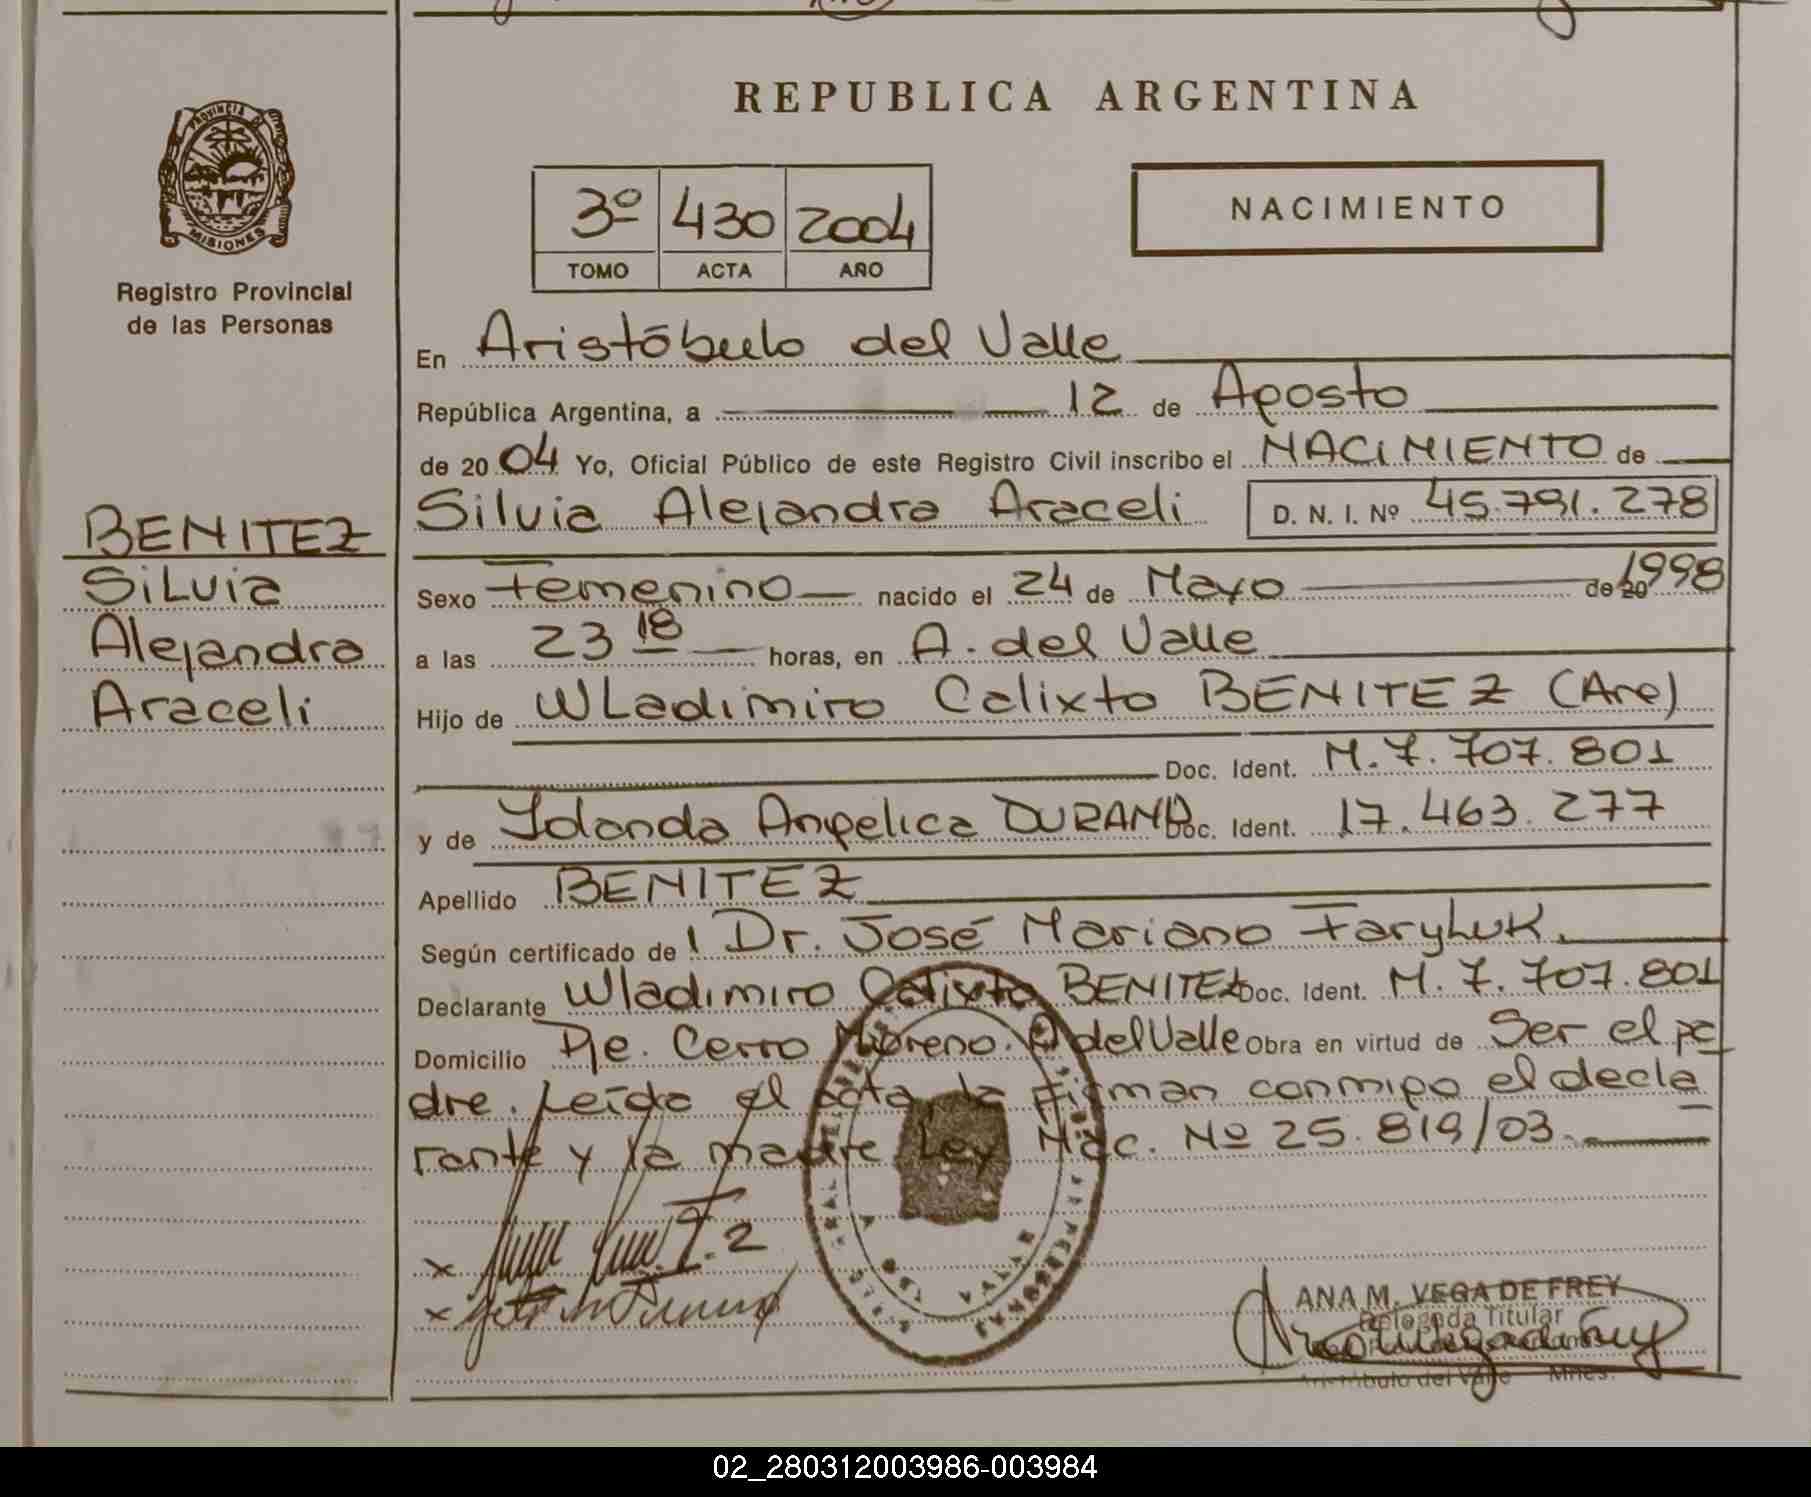 REPUBLICA ARGENTINA
PROVINCIA DE
MISIONES
Registro Provincial
de las Personas
3º 430 2004
TOMO ACTA AÑO
NACIMIENTO
En Aristóbulo del Valle
República Argentina, a 12 de Agosto
de 20 04 Yo, Oficial Público de este Registro Civil inscribo el NACIMIENTO de
Silvia Alejandra Araceli D. N. I. Nº 45.791.278
BENITEZ
Silvia
Alejandra
Araceli
Sexo Femenino nacido el 24 de Mayo de 20 1998
a las 23 18 horas, en A. del Valle
Hijo de Wladimiro Calixto BENITEZ (Arg)
Doc. Ident. M. 7. 707. 801
y de Yolanda Angelica DURAND Doc. Ident. 17.463.277
Apellido BENITEZ
Según certificado de Dr. José Mariano Faryluk.
Declarante Wladimiro Calixto BENITEZ Doc. Ident. M. 7. 707. 801
Domicilio Pje. Cerro Moreno. A del Valle Obra en virtud de Ser el pa
dre. Leída el acta, la firman conmigo el decla
rante y la madre Ley Nac. Nº 25.819/03.
DEL VALLE
ANA M. VEGA DE FREY
Delegada Titular
Aristóbulo del Valle Mnes.
02_280312003986-003984